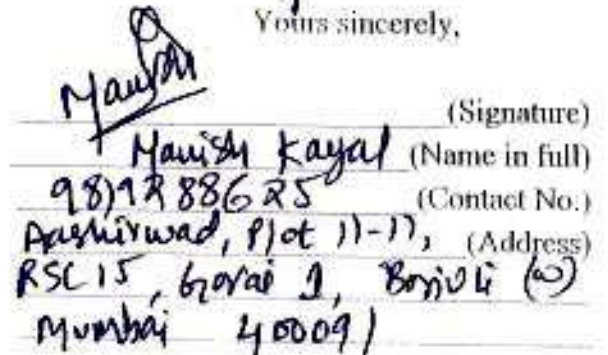 Yours sincerely,
Manish
(Signature)
Manish Kayal (Name in full)
9819288625 (Contact No.)
Aashirwad, Plot 11-17, (Address)
RSC 15, Gorai 1, Borivli (W)
Mumbai 400091